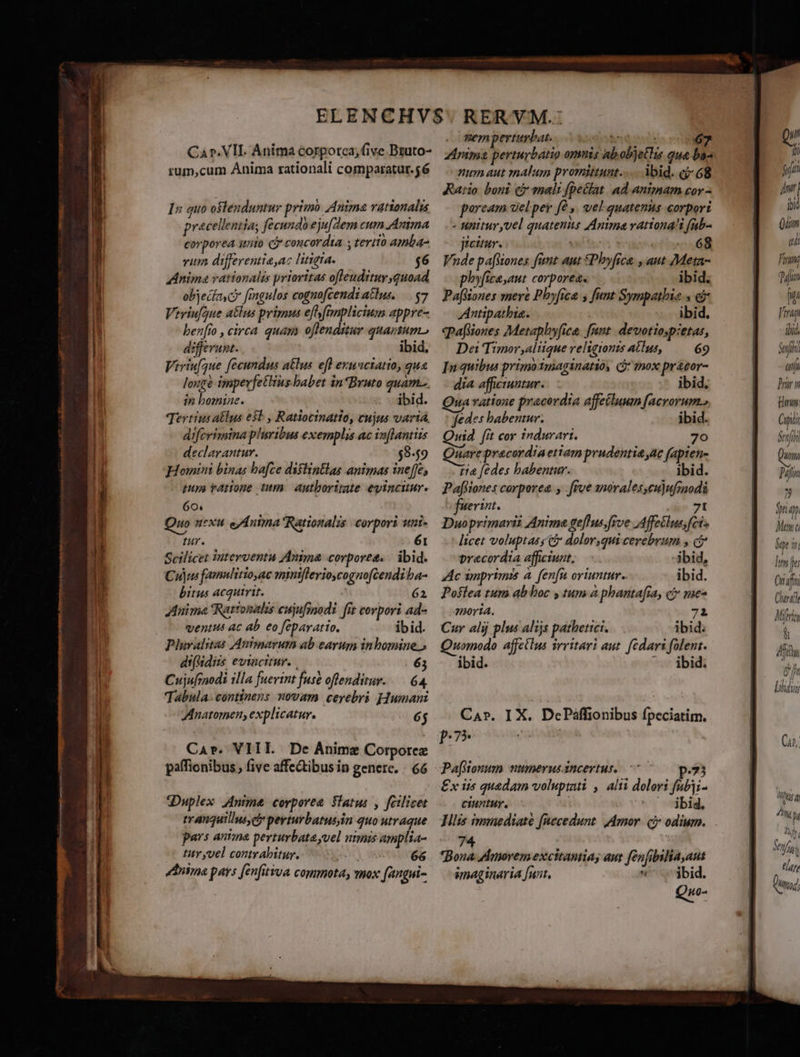 ELENCHVS RERVM.
CAP.VII. Anima corporea, sive Bruto-
rum, cum Anima rationali comparatur. 56
In quo ostenduntur primò Animæ rationalis
præcellentia; secundò ejusdem cum Anima
corporea unio & concordia; tertiò amba-
rum differentiæ, ac litigia. 56
Animæ rationalis prioritas ostenditur, quoad
objecta, & singulos cognoscendi actus. 57
Vtriusque actus primus est, simplicium appre-
hensio, circa quam ostenditur quantum
differunt. ibid.
Vtriusque secundus actus est enunciatio, quæ
longè imperfectius habet in Bruto quàm
in homine. ibid.
Tertius actus est, Ratiocinatio, cujus varia
discrimina pluribus exemplis ac instantiis
declarantur. 58.59
Homini binas hasce distinctas animas inesse,
tum ratione tum authoritate evincitur.
60.
Quo nexu Anima Rationalis corpori uni-
tur. 61
Scilicet interventu Animæ corporeæ. ibid.
Cujus famulitio, ac ministerio, cognoscendi ha-
bitus acquirit. 62
Anima Rationalis cujusmodi sit corpori ad-
ventus ac ab eo separatio. ibid.
Pluralitas Animarum ab earum in homine
dissidiis evincitur. 63
Cujusmodi illa fuerint fusè ostenditur. 64
Tabula continens novam cerebri Humani
Anatomen, explicatur. 65
CAP. VIII. De Animæ Corporeæ
passionibus, sive affectibus in genere. 66
Duplex Animæ corporeæ Status, scilicet
tranquillus, & perturbatus, in quo utraque
pars animæ perturbatæ, vel nimis amplia-
tur, vel contrahitur. 66
Animæ pars sensitiva commota, mox sangui-
nem perturbat. 67
Animæ perturbatio omnis ab objectis quæ bo-
num aut malum promittunt. ibid. & 68
Ratio boni & mali spectat ad animam cor-
poream vel per se, vel quatenus corpori
unitur, vel quatenus Animæ rationali sub-
jicitur. 68
Vnde passiones sunt aut Physicæ, aut Meta-
physicæ, aut corporeæ. ibid.
Passiones merè Physicæ, sunt Sympathiæ, &
Antipathiæ. ibid.
Passiones Metaphysicæ sunt devotio, pietas,
Dei Timor, aliique religionis actus, 69
In quibus primò imaginatio, & mox præcor-
dia afficiuntur. ibid.
Qua ratione præcordia affectuum sacrorum
sedes habentur. ibid.
Quid sit cor indurari. 70
Quare præcordia etiam prudentiæ, ac sapien-
tiæ sedes habentur. ibid.
Passiones corporeæ, sive morales, cujusmodi
fuerint. 71
Duo primarii Animæ gestus, sive Affectus, sci-
licet voluptas, & dolor, qui cerebrum, &
præcordia afficiunt, ibid.
Ac imprimis à sensu oriuntur. ibid.
Postea tum ab hoc, tum à phantasia, & me-
moria. 72
Cur alij plus alijs pathetici. ibid.
Quomodo affectus irritari aut sedari solent.
ibid. ibid.
CAP. IX. De Passionibus speciatim.
p.73.
Passionum numerus incertus. p.73
Ex iis quædam voluptati, alii dolori subji-
ciuntur. ibid.
Illis immediatè succedunt Amor & odium.
74
Bona Amorem excitantia, aut sensibilia, aut
imaginaria sunt, ibid.
Quo-